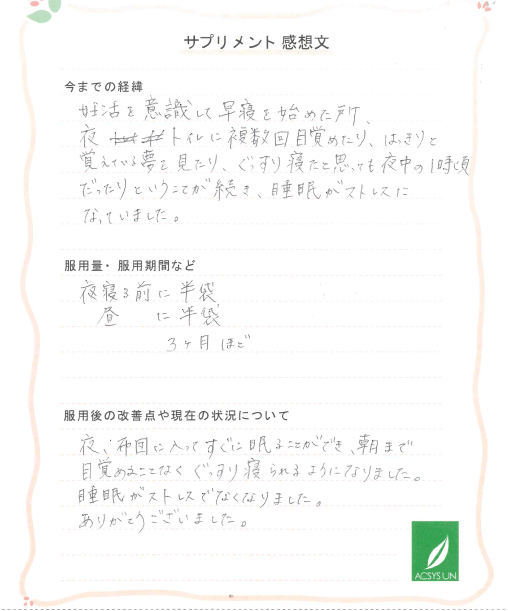 サプリメント 感想文
今までの経緯
妊活を意識して早寝を始めた所、
夜 トイレに複数回目覚めたり、はっきりと
覚えている夢を見たり、ぐっすり寝たと思っても夜中の1時頃
だったりということが続き、睡眠がストレスに
なっていました。
服用量・服用期間など
夜寝る前に半袋
昼 に半袋
3ヶ月ほど
服用後の改善点や現在の状況について
夜、布団に入ってすぐに眠ることができ、朝まで
目覚めることなくぐっすり寝られるようになりました。
睡眠がストレスでなくなりました。
ありがとうございました。
ACSYSUN